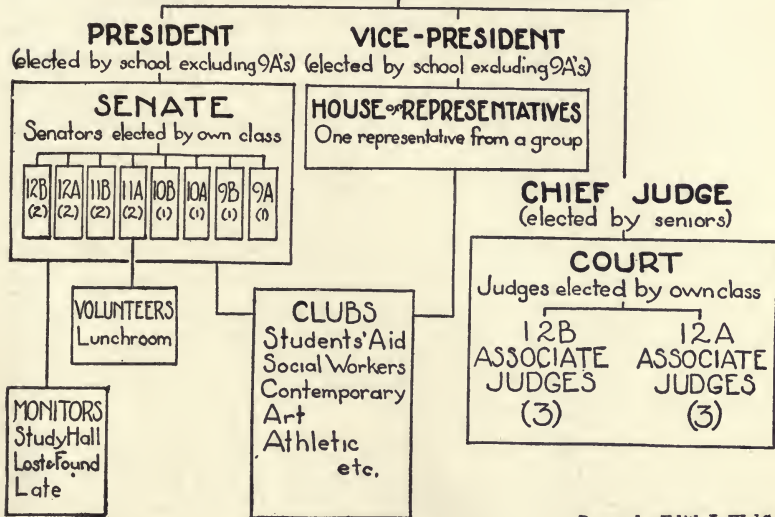 PRESIDENT
(elected by school excluding 9A's)
VICE-PRESIDENT
(elected by school excluding 9A's)
SENATE
Senators elected by own class
12B (2) 12A (2) 11B (2) 11A (2) 10B (1) 10A (1) 9B (1) 9A (1)
HOUSE OF REPRESENTATIVES
One representative from a group
CHIEF JUDGE
(elected by seniors)
COURT
Judges elected by own class
12B
ASSOCIATE
JUDGES
(3)
12A
ASSOCIATE
JUDGES
(3)
VOLUNTEERS
Lunchroom
CLUBS
Students' Aid
Social Workers
Contemporary
Art
Athletic
etc.
MONITORS
Study Hall
Lost & Found
Late